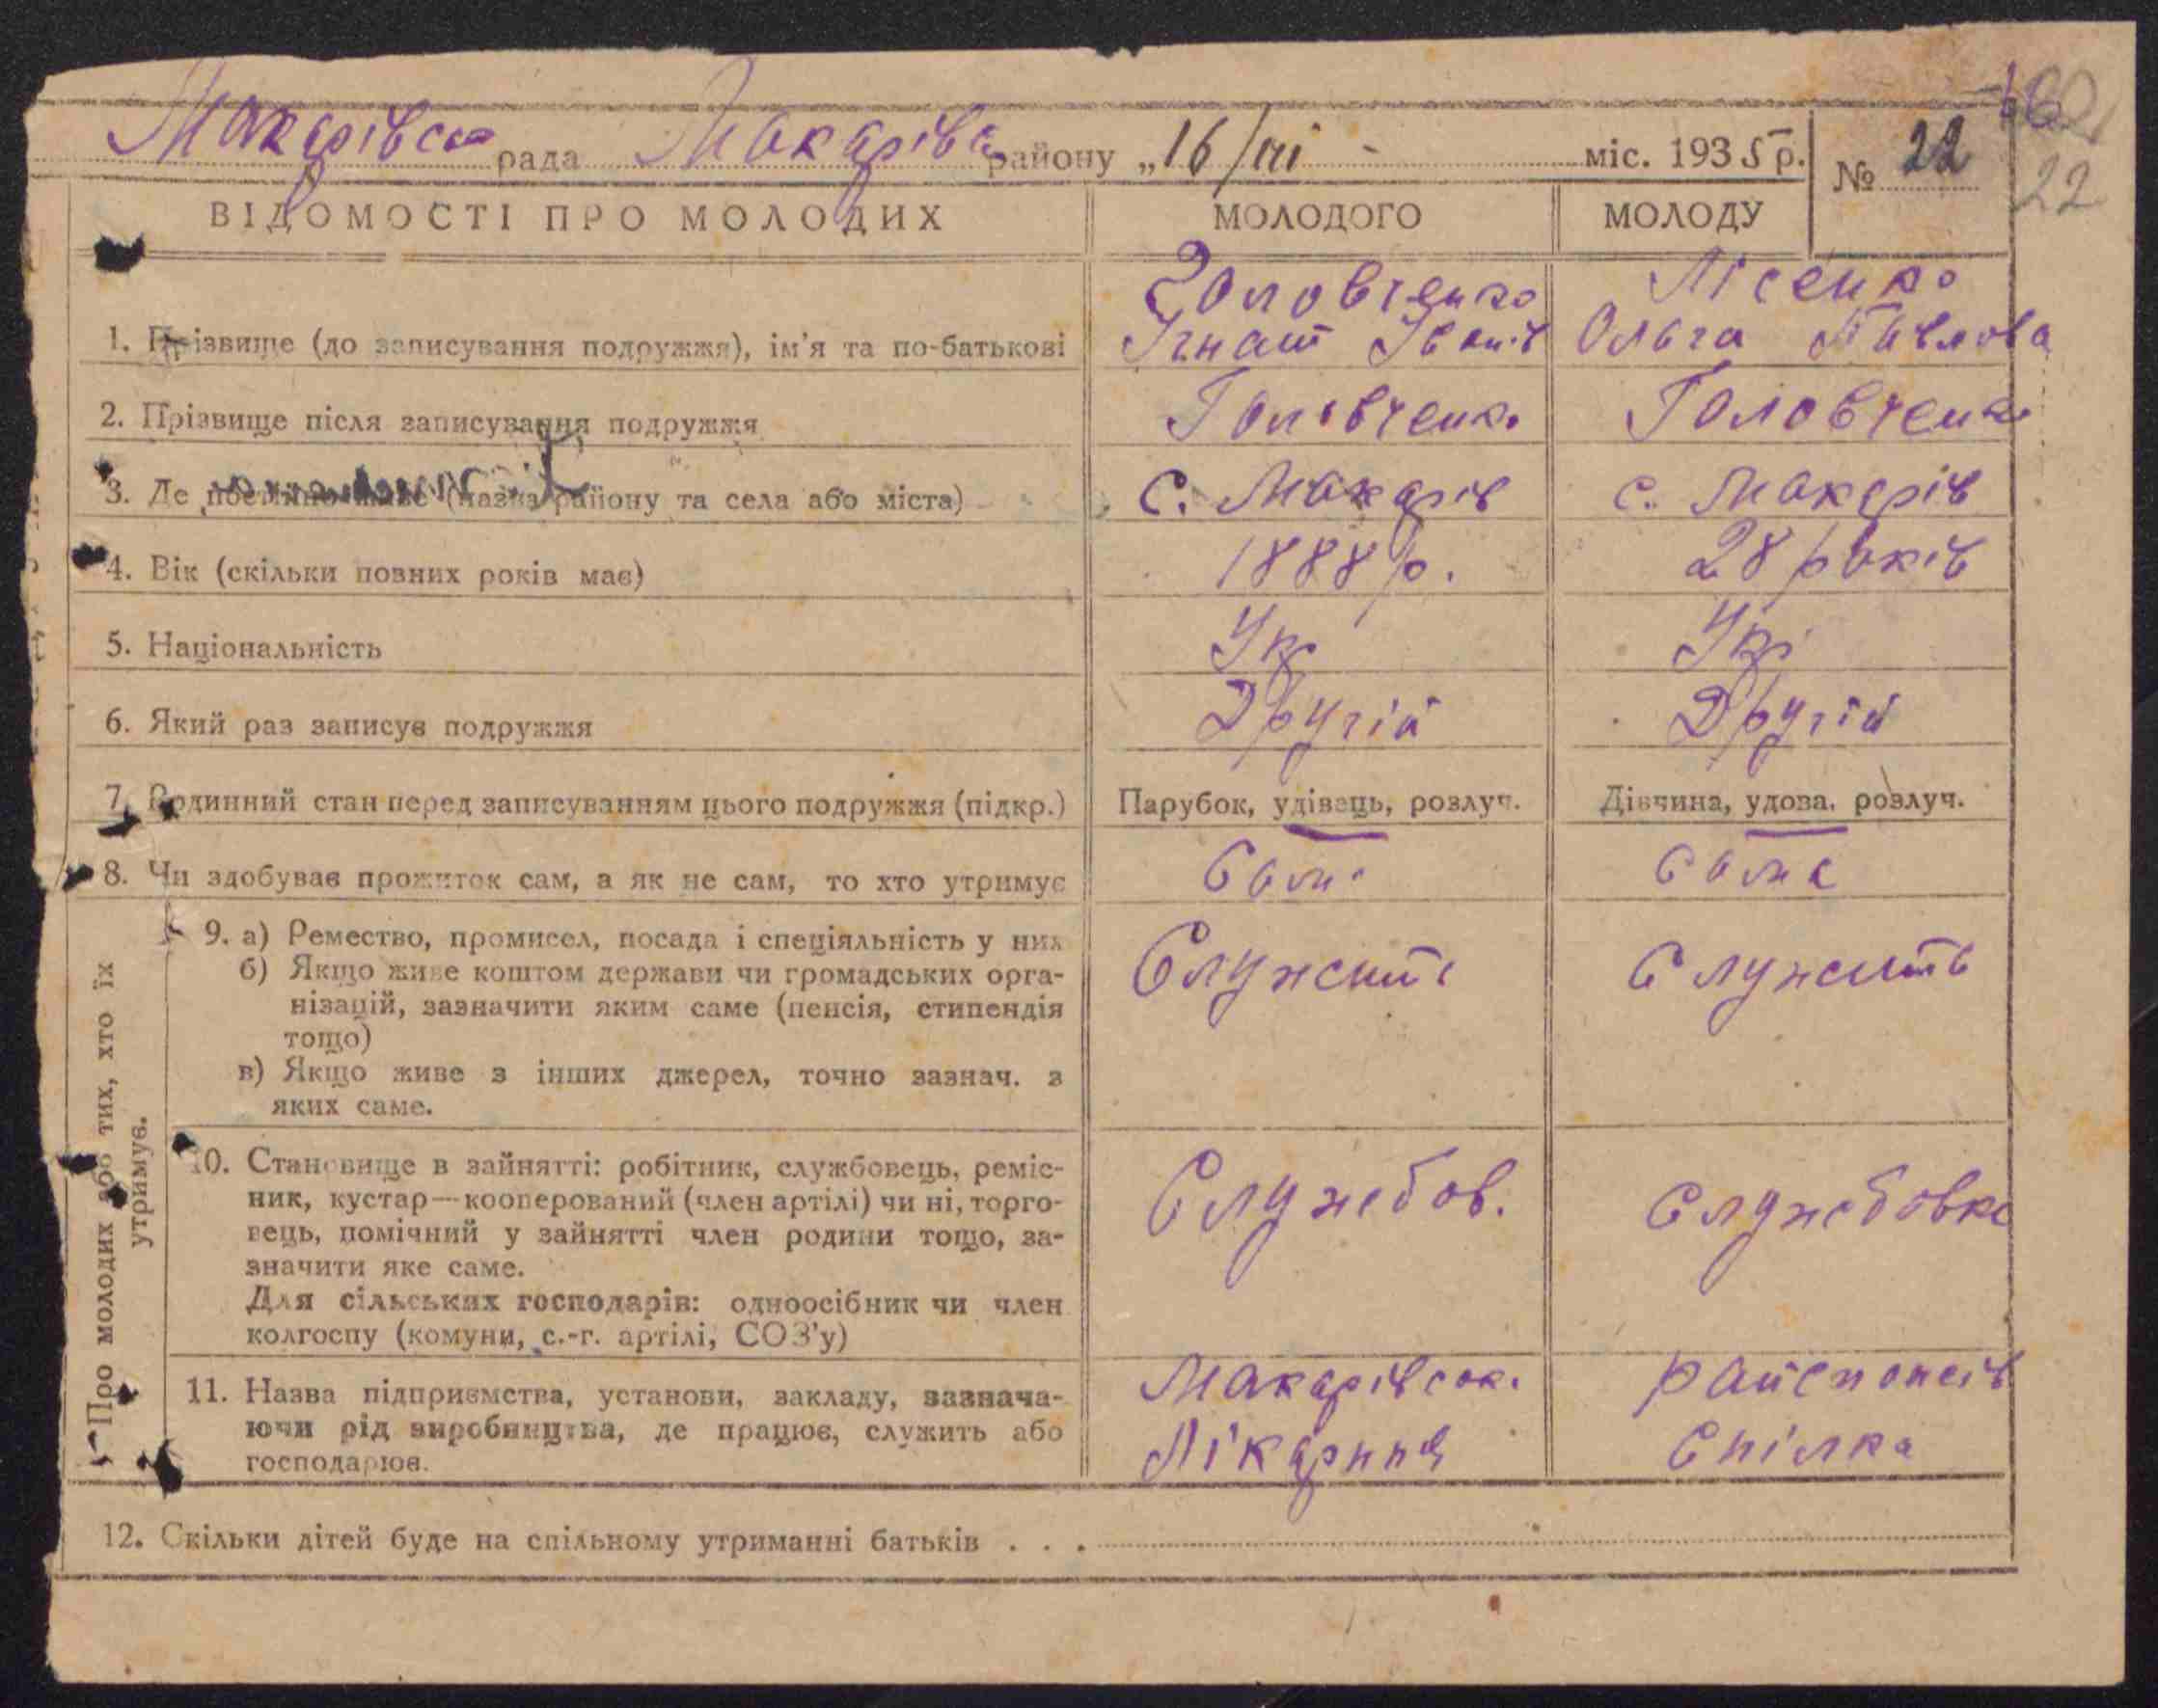 Макарівська рада Макарівс району „16/III міс. 1935 р. № 22
22
ВІДОМОСТІ ПРО МОЛОДИХ МОЛОДОГО МОЛОДУ
Головченко Лісенко
1. Прізвище (до записування подружжя), ім'я та по-батькові Ігнат Іванів Ольга Павлова
2. Прізвище після записування подружжя Головченко Головченко
3. Де постійно живе (назва району та села або міста) с. Макарів с. Макарів
4. Вік (скільки повних років має) 1888 р. 28 років
5. Національність Укр Укр
6. Який раз записує подружжя Другій Другій
7. Родинний стан перед записуванням цього подружжя (підкр.) Парубок, удівець, розлуч. Дівчина, удова, розлуч.
8. Чи здобував прожиток сам, а як не сам, то хто утримує Сам Сама
Про молодих або тих, хто їх
утримує.
9. а) Ремество, промисел, посада і спеціяльність у них Служить Служить
б) Якщо живе коштом держави чи громадських орга-
нізацій, зазначити яким саме (пенсія, стипендія
тощо)
в) Якщо живе з інших джерел, точно зазнач. з
яких саме.
10. Становище в зайнятті: робітник, службовець, реміс- Службов. Службовка
ник, кустар—кооперований (член артілі) чи ні, торго-
вець, помічний у зайнятті член родини тощо, за-
значити яке саме.
Для сільських господарів: одноосібник чи член
колгоспу (комуни, с.-г. артілі, СОЗ'у)
11. Назва підприємства, установи, закладу, зазнача- Макарівськ.
ючи рід виробництва, де працює, служить або Лікарння Спілка
господарює.
12. Скільки дітей буде на спільному утриманні батьків . . .